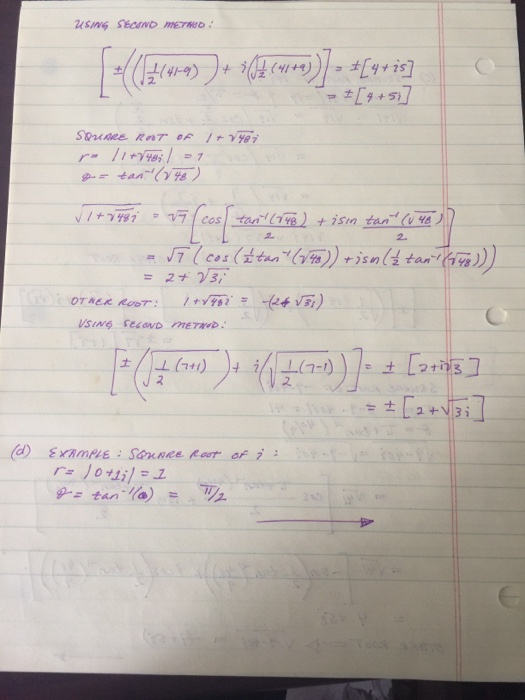 USING SECOND METHOD:
[±((√1/2(41-9)) + i(√1/2(41+9)))] = ±[4+i5]
= ±[4+5i]
SQUARE ROOT OF 1+√48i
r = |1+√48i| = 7
θ = tan⁻¹(√48)
√1+√48i = √7 [cos[tan⁻¹(√48)/2 + isin tan⁻¹(√48)/2]
= √7 (cos(1/2 tan⁻¹(√48)) + isin(1/2 tan⁻¹(√48)))
= 2+√3i
OTHER ROOT: 1+√48i = -(2+√3i)
USING SECOND METHOD:
[±(√1/2(7+1)) + i(√1/2(7-1))] = ±[2+i√3]
= ±[2+√3i]
(d) EXAMPLE: SQUARE ROOT OF i:
r = |0+1i| = 1
θ = tan⁻¹( ) = π/2